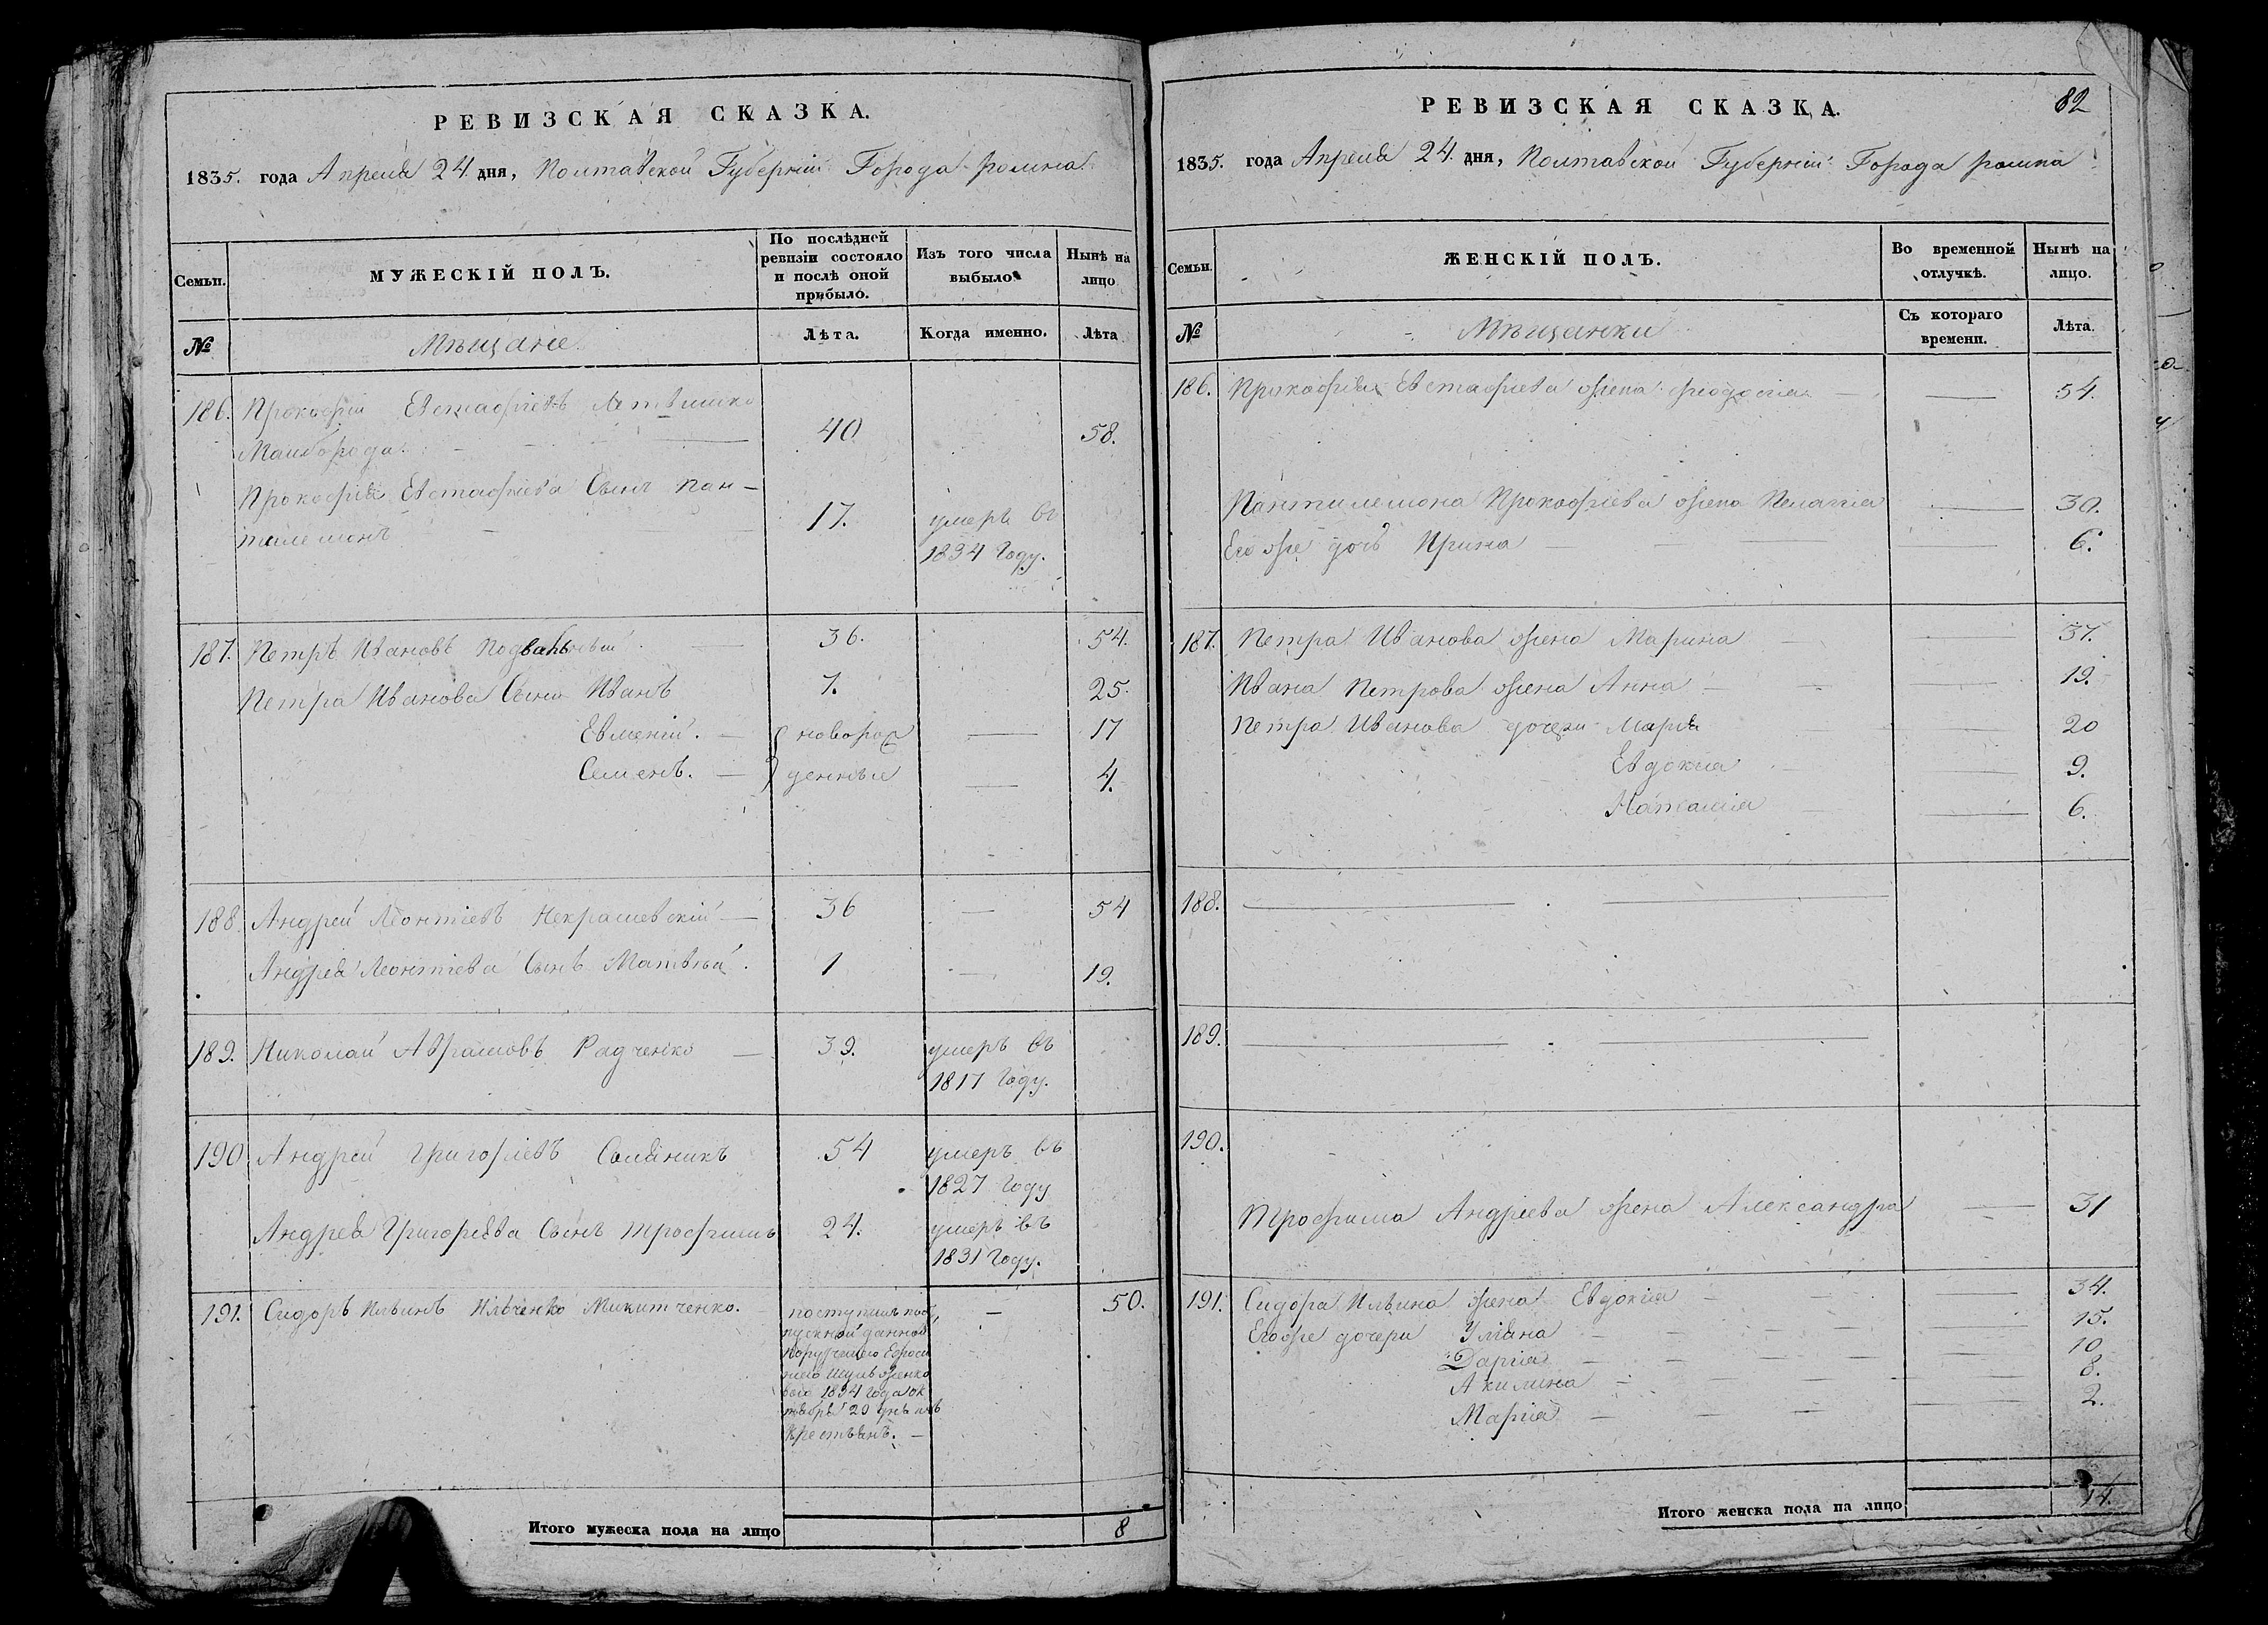 РЕВИЗСКАЯ СКАЗКА.
1835. года Апреля 24. дня, Полтавской Губерніи Города ромна
Семьи.
МУЖЕСКІЙ ПОЛЪ.
По послѣдней ревизіи состояло и послѣ оной прибыло.
Изъ того числа выбыло.
Нынѣ на лицо
№
Мѣщане
Лѣта.
Когда именно.
Лѣта
186. Прокофій Евстафіевъ
Майборода. 40 58.
Прокофія Евстафіева Сынъ Пан-
телемонъ 17. умеръ въ
1834 Году.
187. Петръ Ивановъ 36. 54.
Петра Иванова Сыны Иванъ 7. 25.
Евменій. новорож 17
Семенъ. денные 4.
188. Андрей Леонтіевъ Некрашевскій 36 54
Андрея Леонтіева Сынъ Матвѣй. 1 19.
189. Николай Аврамовъ Радченко 39. умеръ въ
1817 Году.
190 Андрей Григоріевъ 54 умеръ въ
1827 Году
Андрея Григоріева Сынъ Трофимъ 24. умеръ въ
1831 Году.
191. Сидоръ Ильинъ Ильченко Микитченко. поступилъ по от 50.
пускной данной
1834 года ок
тября 20 дня изъ
Крестьянъ.
Итого мужеска пола на лицо 8
РЕВИЗСКАЯ СКАЗКА. 82
1835. года Апреля 24. дня, Полтавской Губерніи Города ромна
Семьи.
ЖЕНСКІЙ ПОЛЪ.
Во временной отлучкѣ.
Нынѣ на лицо.
№
Мѣщанки
Съ котораго времени.
Лѣта.
186. Прокофія Евстафіева жена Феодосія 54.
Пантилемона Прокофіева жена Пелагія 30.
Его же дочь Ирина 6.
187. Петра Иванова жена Марина 37.
Ивана Петрова жена Анна 19.
Петра Иванова дочери Марія 20
Евдокія 9.
Наталія 6.
188.
189.
190.
Трофима Андреева жена Александра 31
191. Сидора Ильина жена Евдокія 34.
Его же дочери Уліяна 15.
Дарія 10
Акилина 8.
Марія 2.
Итого женска пола на лицо 14.